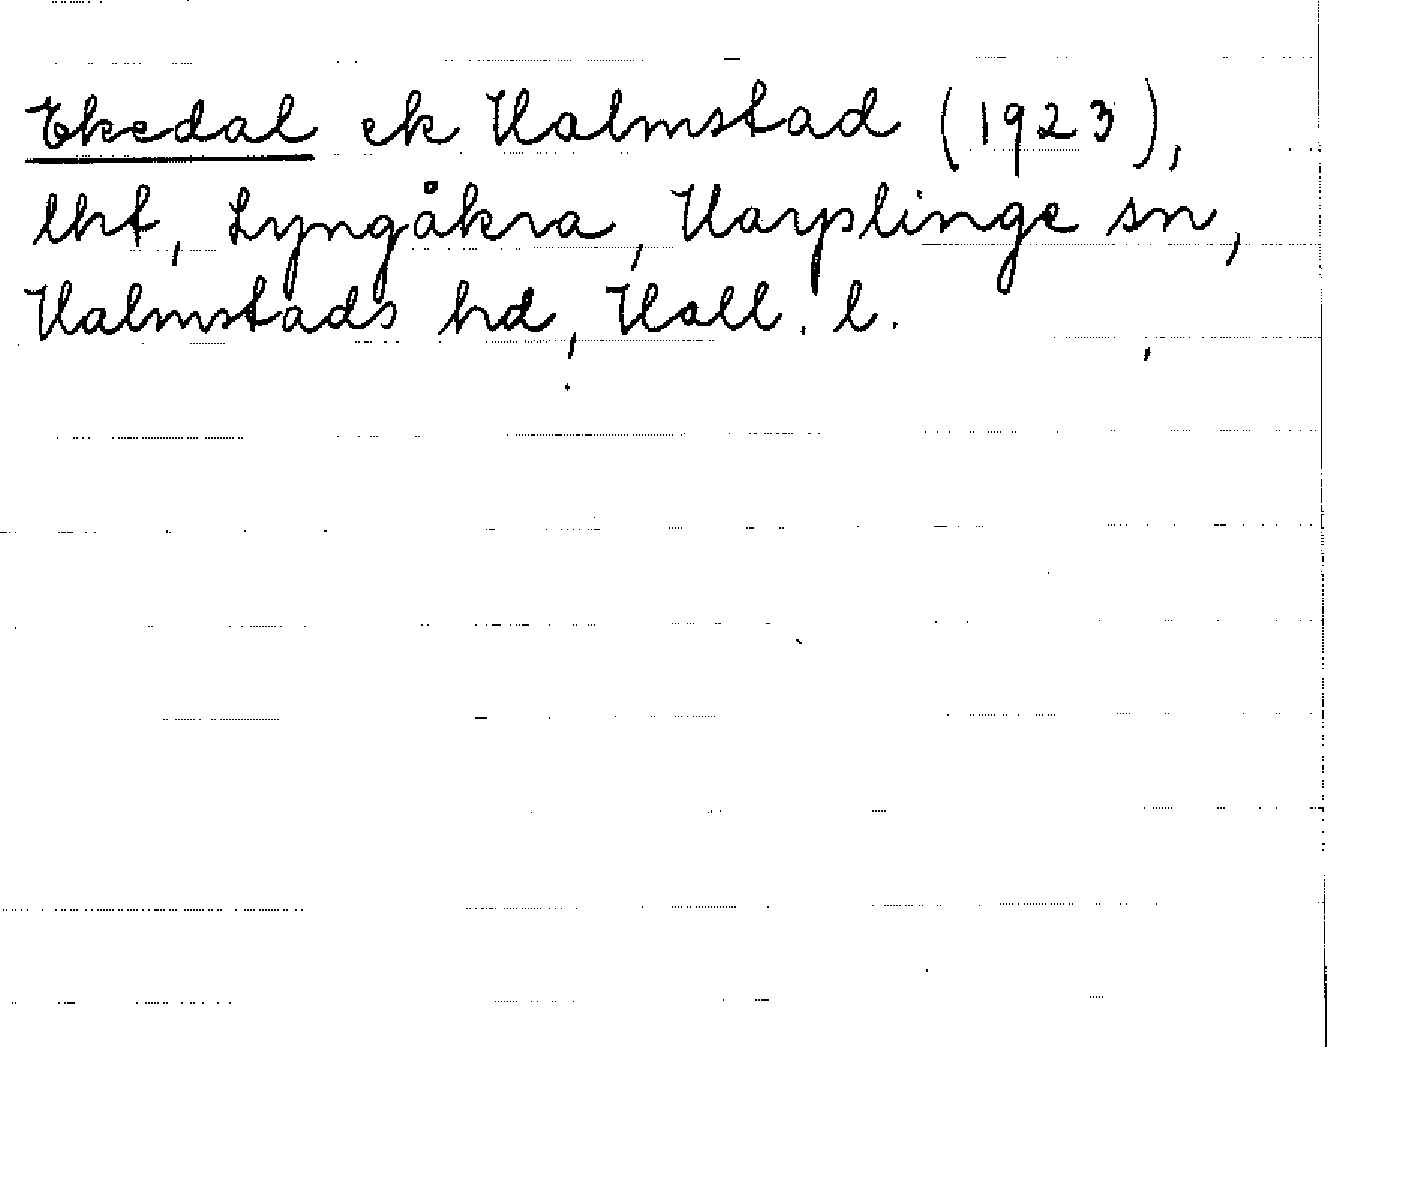 Ekedal ek Halmstad (1923),
lht, Lyngåkra, Harplinge sn,
Halmstads hd, Hall. l.